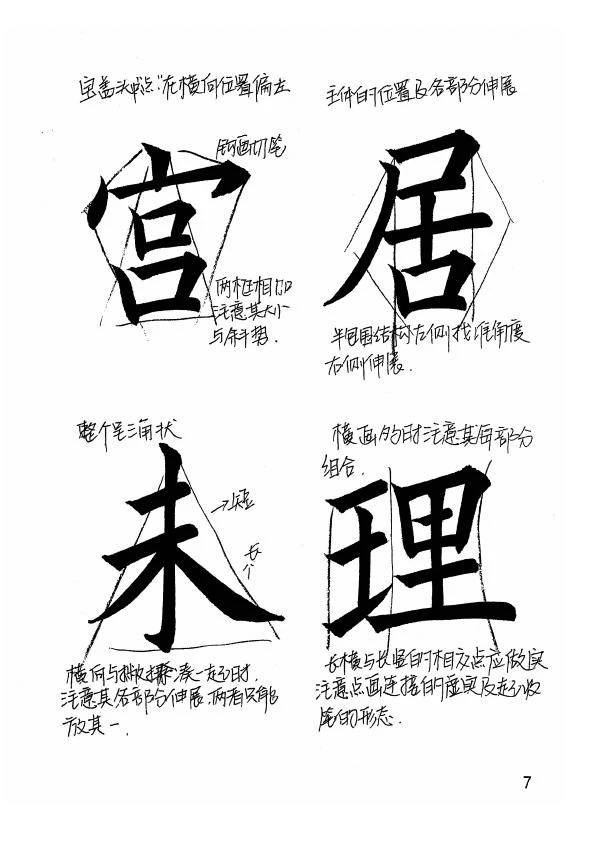 宝盖头"点"在横向位置偏左
宫
钩画切笔
两框相加
注意其大小
与斜势.
主体的位置及各部分伸展
居
半包围结构左侧找准角度
右侧伸展.
整个呈三角状
未
→短
长
横向与撇捺凑一起时.
注意其各部分伸展.两者只能
放其一.
横画多时注意其每部分
组合.
理
长横与长竖的相交点应做实
注意点画连接的虚实及起收
笔的形态.
7